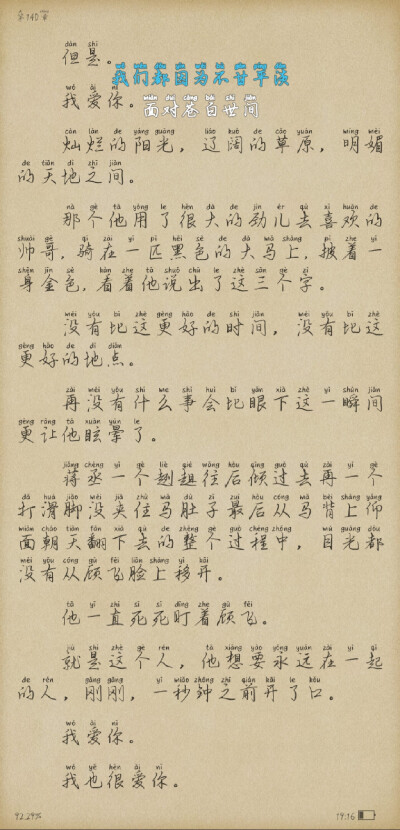 第140章
dàn shì
但是。
我们都因为不甘平淡
wǒ ài nǐ
我爱你。
miàn duì cāng bái shì jiān
面对苍白世间
càn làn de yáng guāng liáo kuò de cǎo yuán míng mèi
灿烂的阳光，辽阔的草原，明媚
de tiān dì zhī jiān
的天地之间。
nà gè tā yòng le hěn dà de jìn ér qù xǐ huān de
那个他用了很大的劲儿去喜欢的
shuài gē qí zài yī pǐ hēi sè de dà mǎ shàng pī zhe yī
帅哥，骑在一匹黑色的大马上，披着一
shēn jīn sè kàn zhe tā shuō chū le zhè sān gè zì
身金色，看着他说出了这三个字。
méi yǒu bǐ zhè gèng hǎo de shí jiān méi yǒu bǐ zhè
没有比这更好的时间，没有比这
gèng hǎo de dì diǎn
更好的地点。
zài méi yǒu shí me shì huì bǐ yǎn xià zhè yī shùn jiān
再没有什么事会比眼下这一瞬间
gèng ràng tā xuàn yūn le
更让他眩晕了。
jiǎng chéng yī gè liè qiè wǎng hòu qīng guò qù zài yī gè
蒋丞一个趔趄往后倾过去再一个
dǎ huá jiǎo méi jiā zhù mǎ dù zi zuì hòu cóng mǎ bèi shàng yǎng
打滑脚没夹住马肚子最后从马背上仰
miàn cháo tiān fān xià qù de zhěng gè guò chéng zhōng mù guāng dōu
面朝天翻下去的整个过程中，目光都
méi yǒu cóng gù fēi liǎn shàng yí kāi
没有从顾飞脸上移开。
tā yī zhí sǐ sǐ dīng zhe gù fēi
他一直死死盯着顾飞。
jiù shì zhè gè rén tā xiǎng yào yǒng yuǎn zài yī qǐ
就是这个人，他想要永远在一起
de rén gāng gāng yī miǎo zhōng zhī qián kāi le kǒu
的人，刚刚，一秒钟之前开了口。
wǒ ài nǐ
我爱你。
wǒ yě hěn ài nǐ
我也很爱你。
92.29%
19:16